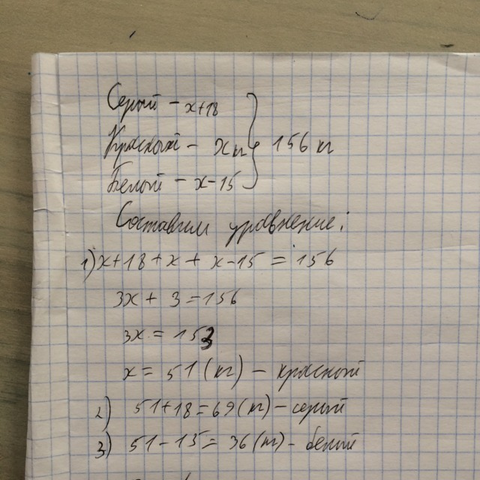 Серый - x+18
Красный - x кг } 156 кг
Белый - x-15
Составим уравнение:
1) x+18+x+x-15=156
3x+3=156
3x=153
x=51(кг) - красный
2) 51+18=69(кг) - серый
3) 51-15=36(кг) - белый